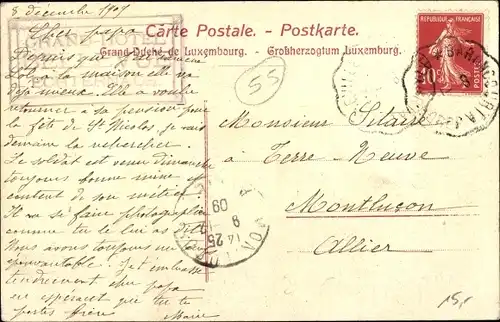 8 décembre 1909
Carte Postale. - Postkarte.
Grand-Duché de Luxembourg. - Großherzogtum Luxemburg.
Cher papa
Depuis que
la maison elle va
déjà mieux. Elle a voulu
retourner à sa pension pour
la fête de St Nicolas, je vais
demain la rechercher.
Le soldat est venu dimanche
toujours bonne mine et
content de son métier.
Il va se faire photographier
comme tu le lui as dit.
Nous avons toujours un temps
épouvantable. Je t'embrasse
tendrement cher papa
en espérant que tu
portes
Marie
55
REPUBLIQUE FRANÇAISE
10
POSTES
Monsieur
à Terre-Neuve
Montluçon
Allier
14 25
9
09
15,-